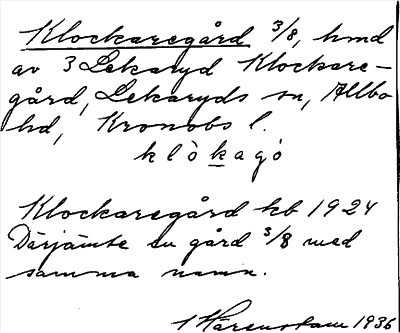 Klockaregård 3/8, hmd
av 3 Lekaryd Klockare-
gård, Lekaryds sn, Allbo
hd, Kronobs l.
klòkagó
Klockaregård kb 1924
Därjämte en gård 3/8 med
samma namn.
1936